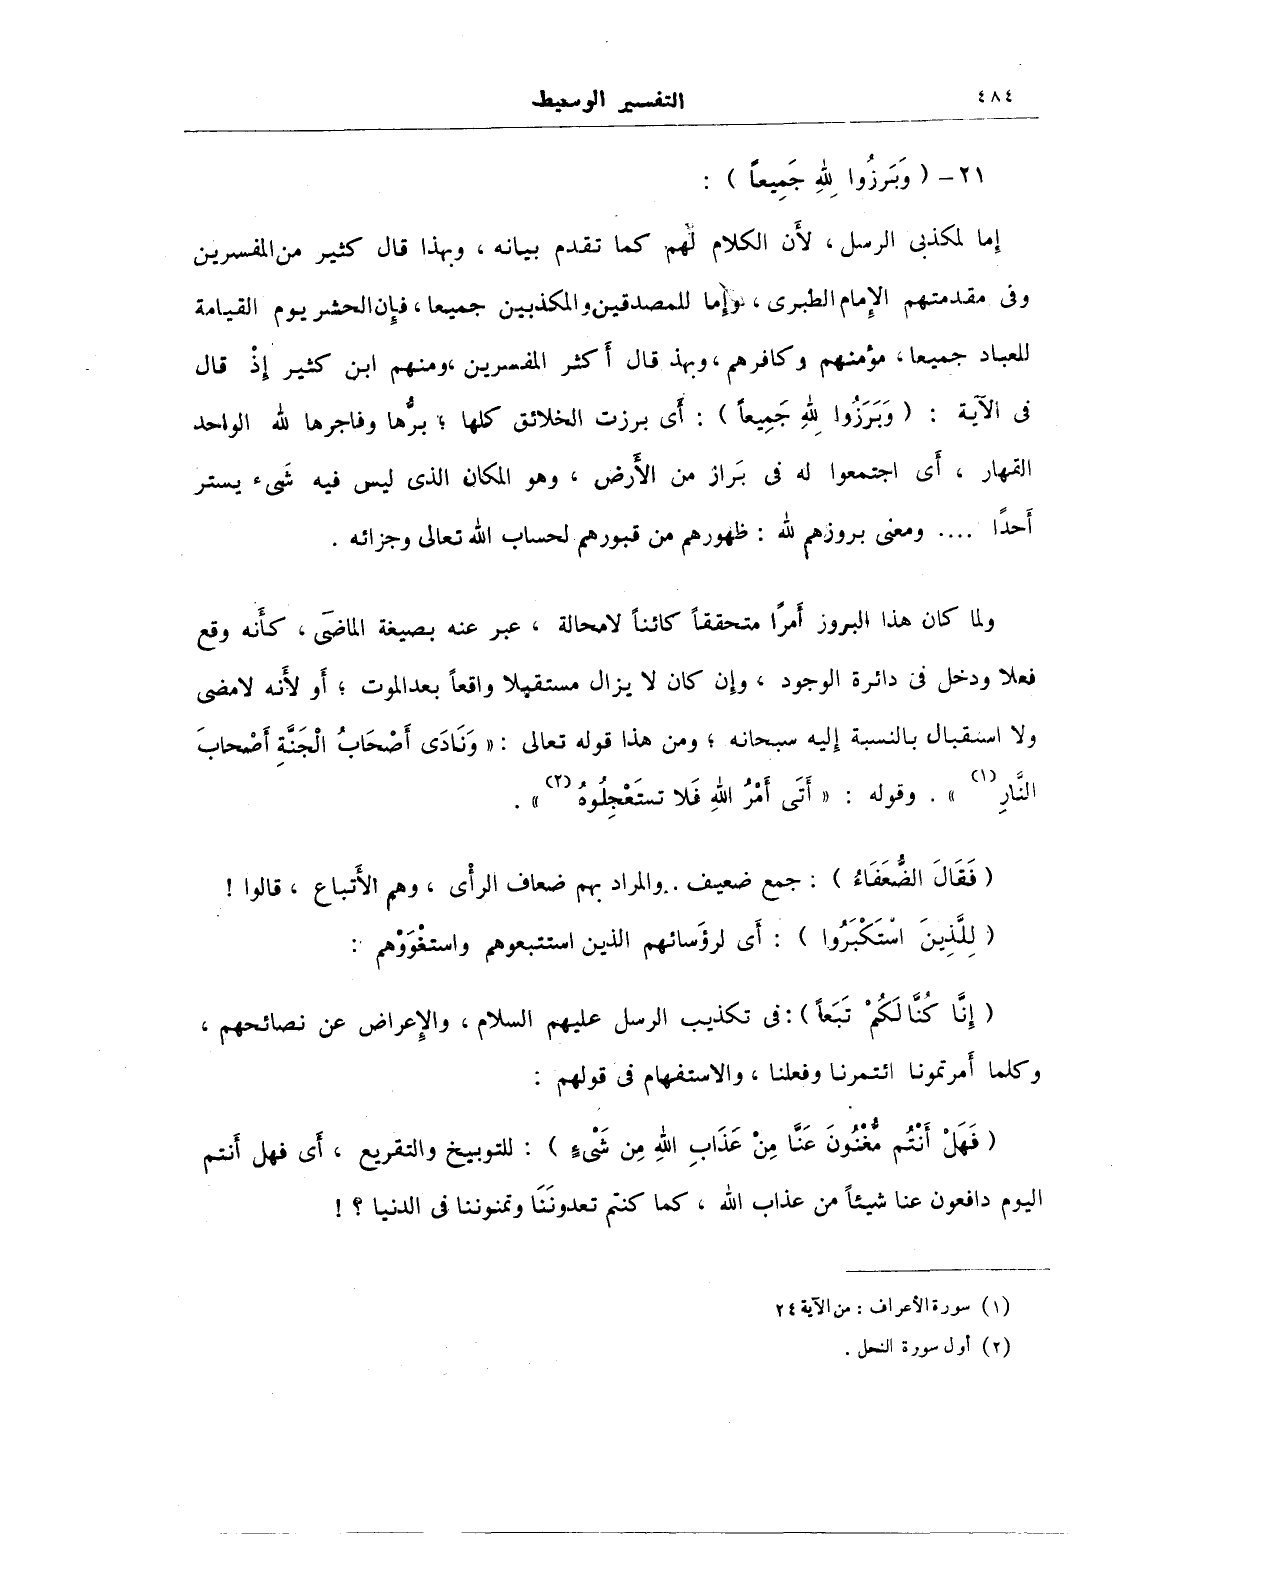 ٤٨٤
التفسير الوسيط
٢١- ( وَبَرزُوا لِلهِ جَمِيعاً ) :
إما لمكذبى الرسل ، لأَن الكلام لهم كما تقدم بيانه ، وبهذا قال كثير من المفسرين
وفى مقدمتهم الإِمام الطبرى ، وإِما للمصدقين والمكذبين جميعا ، فإِن الحشر يوم القيامة
للعباد جميعا ، مؤمنهم وكافرهم ، وبهذ قال أَكثر المفسرين ، ومنهم ابن كثير إِذْ قال
فى الآية : ( وَبَرَزُوا لِلهِ جَمِيعاً ) : أَى برزت الخلائق كلها ؛ برُّها وفاجرها لله الواحد
القهار ، أَى اجتمعوا له فى بَراز من الأَرض ، وهو المكان الذى ليس فيه شَىء يستر
أَحدًا .... ومعنى بروزهم لله : ظهورهم من قبورهم لحساب الله تعالى وجزائه .
ولما كان هذا البروز أَمرًا متحققاً كائناً لامحالة ، عبر عنه بصيغة الماضى ، كأَنه وقع
فعلا ودخل فى دائرة الوجود ، وإن كان لا يزال مستقبلا واقعاً بعد الموت ؛ أَو لأَنه لامضى
ولا استقبال بالنسبة إليه سبحانه ؛ ومن هذا قوله تعالى : « وَنَادَى أَصْحَابُ الْجَنَّةِ أَصْحابَ
النَّارِ (١) » . وقوله : « أَتَى أَمْرُ اللهِ فَلا تستَعْجِلُوهُ (٢) » .
( فَقَالَ الضُّعَفَاءُ ) : جمع ضعيف .. والمراد بهم ضعاف الرأْى ، وهم الأَتباع ، قالوا !
( لِلَّذِينَ اسْتَكْبَرُوا ) : أَى لرؤَسائهم الذين استتبعوهم واستغْوَوْهم :
( إِنَّا كُنَّا لَكُمْ تَبَعاً ) : فى تكذيب الرسل عليهم السلام ، والإِعراض عن نصائحهم ،
وكلما أَمرتمونا ائتمرنا وفعلنا ، والاستفهام فى قولهم :
( فَهَلْ أَنْتُم مُّغْنُونَ عَنَّا مِنْ عَذَابِ اللهِ مِن شَىْءٍ ) : للتوبيخ والتقريع ، أَى فهل أَنتم
اليوم دافعون عنا شيئاً من عذاب الله ، كما كنتم تعدونَنَا وتمنوننا فى الدنيا ؟ !
(١) سورة الأعراف : من الآية ٢٤
(٢) أول سورة النحل .